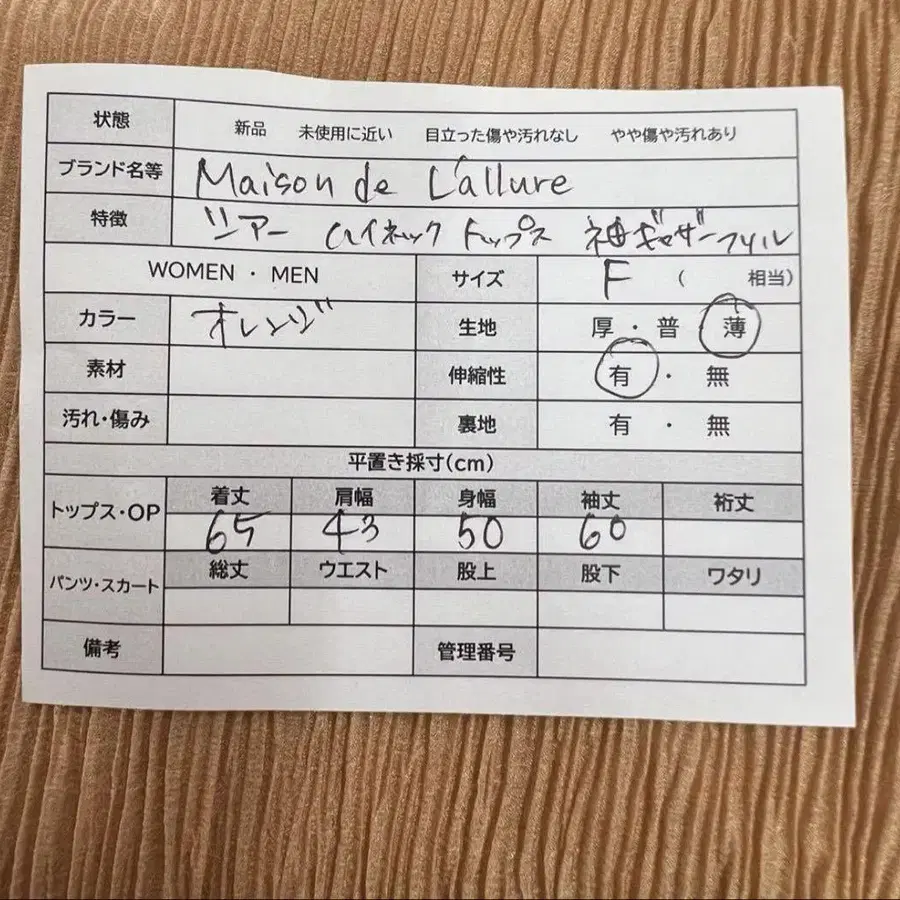 状態 新品 未使用に近い 目立った傷や汚れなし やや傷や汚れあり
ブランド名等 Maison de L'allure
特徴 シアー ハイネック トップス 袖ギャザーフリル
WOMEN ・ MEN サイズ F ( 相当)
カラー オレンジ 生地 厚 ・ 普 薄
素材 伸縮性 有 ・ 無
汚れ・傷み 裏地 有 ・ 無
平置き採寸(cm)
トップス・OP 着丈 肩幅 身幅 袖丈 裄丈
65 43 50 60
パンツ・スカート 総丈 ウエスト 股上 股下 ワタリ
備考 管理番号